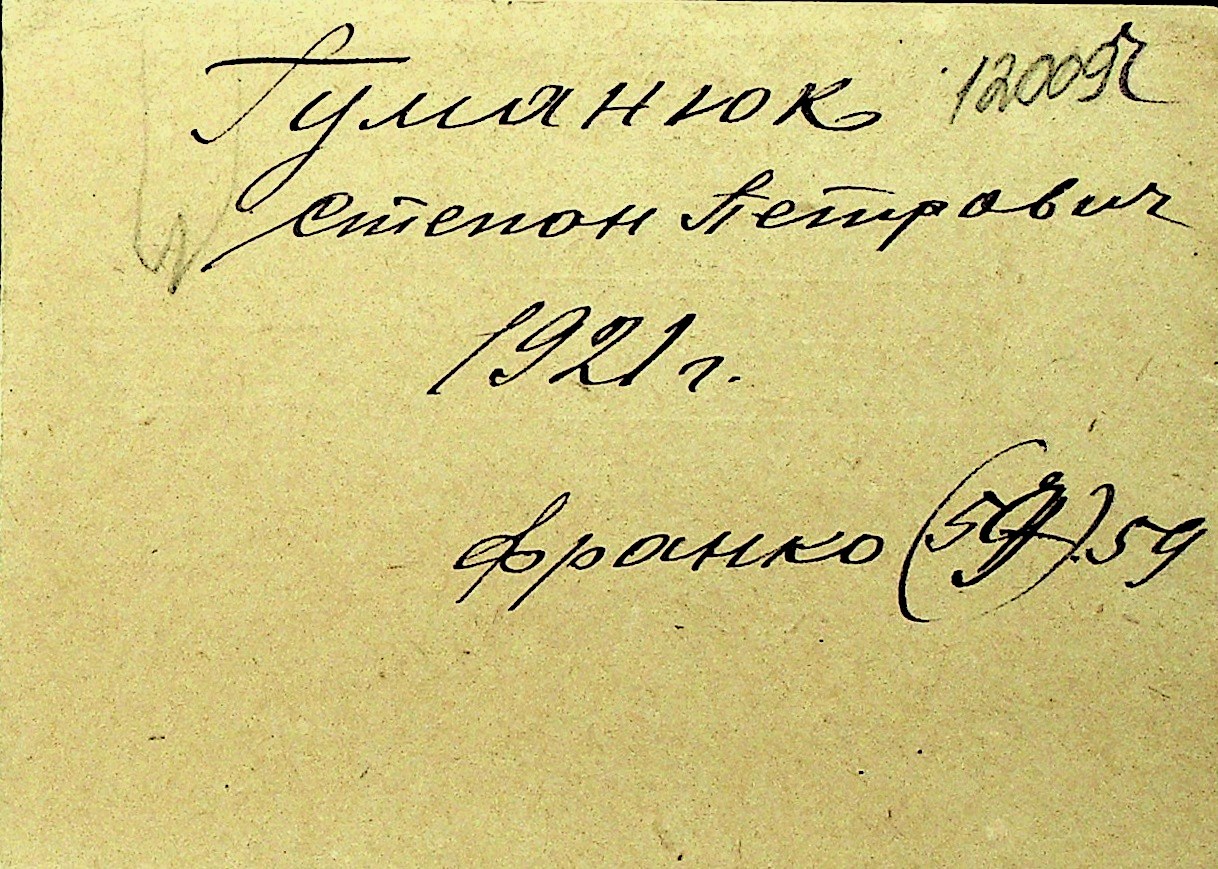 Гуманюк 12009
Степан Петрович
1921 г.
Франко (59) 59